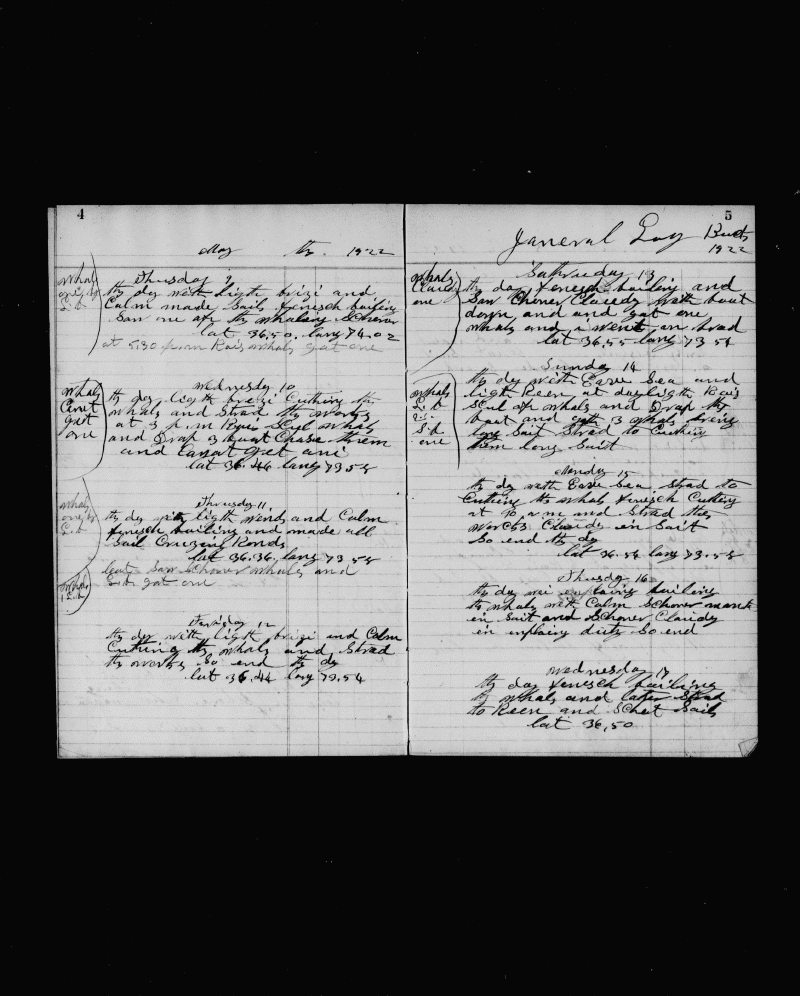 4
May th. 1922
whals
one by
L.b
Thursday 9
th dey with ligth brizi and
Calm made Sail finesch boiling
Saw one of the whaling Schover
lat 36,50. lang 74.02
at 5,30 p.m Rais whals gat one
whals
Canut
gat
one
wednesday 10
th dey ligth brizi Cuthing the
whals and Strad the works
at 3 p.m Rais Scul whals
and Drap 3 buat Chase them
and Canat get ani
lat 36.46 lang 73.55
whals
one by
L.b
Thursday 11
th dey with ligth Wends and Calm
finesch boiling and made all
Sail Cruzeng Ronds
lat 36.36. lang 73.55
Saw Schover whals and
L.b. gat one
whals
1 L.b
Friday 12
th dey with ligth brizi and Calm
Cuthing th whals and Strad
th works So end th dy
lat 36.44 lang 73.54
5
Janeral Log Buck
1922
whals
Claudy
one
Saturaday 13
th day finesch builing and
Saw Chover Claudy with buat
down and and gat one
whals and i went an brad
lat 36,55 lang 73 51
Sunday 14
whals
L.b
2
S.b
one
th dy with Eave Sea and
ligth Reen at dayligth Rais
Scul of whals and Drap th
buat and gath 3 whals bring
long Sait Strad to Cuthing
them long Sait
Monday 15
th dy with Eave Sea Strad to
Cuthing th whals finesch Cuthing
at 10 a m and Strad the
Works Claudy in Sait
So end th dy
lat 36.54 lang 73.55
Thusday 16
th dey builing
th whals with Calm Schover
in Sait and Schover Claudy
in duty So end
wednesday 17
th day finesch builing
th whals and later Strad
to Reen and Schet Sails
lat 36,50